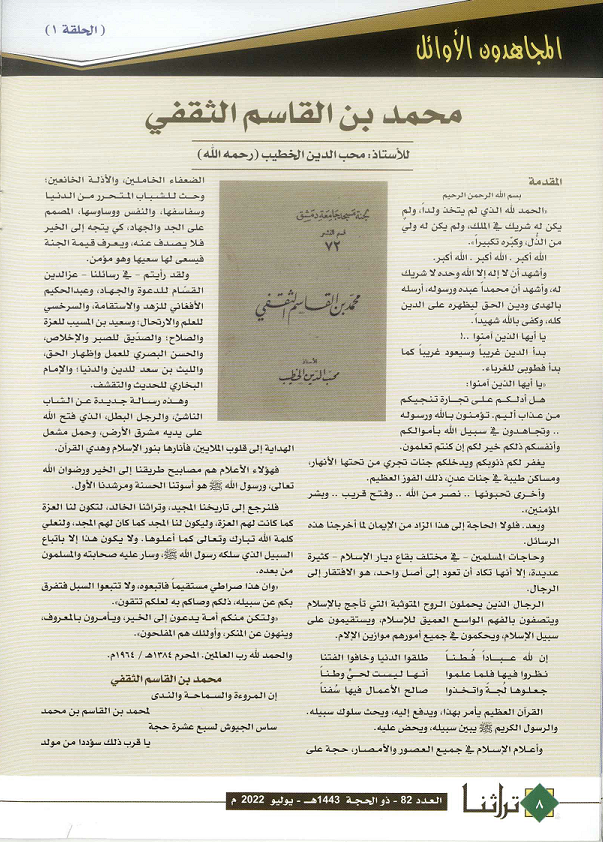 (الحلقة ١)
المجاهدون الأوائل
محمد بن القاسم الثقفي
للأستاذ: محب الدين الخطيب (رحمه الله)
المقدمة
بسم الله الرحمن الرحيم
«الحمد لله الذي لم يتخذ ولداً، ولم
يكن له شريك في الملك، ولم يكن له ولي
من الذُّل، وكبّره تكبيراً».
الله أكبر . الله أكبر . الله أكبر.
وأشهد أن لا إله إلا الله وحده لا شريك
له، وأشهد أن محمداً عبده ورسوله، أرسله
بالهدى ودين الحق ليظهره على الدين
كله، وكفى بالله شهيداً.
يا أيها الذين آمنوا ..!
بدأ الدين غريباً وسيعود غريباً كما
بدأ فطوبى للغرباء.
«يا أيها الذين آمنوا:
هل أدلكم على تجارة تنجيكم
من عذاب أليم. تؤمنون بالله ورسوله
.. وتجاهدون في سبيل الله بأموالكم
وأنفسكم ذلكم خير لكم إن كنتم تعلمون.
يغفر لكم ذنوبكم ويدخلكم جنات تجري من تحتها الأنهار،
ومساكن طيبة في جنات عدن، ذلك الفوز العظيم.
وأخرى تحبونها .. نصر من الله .. وفتح قريب .. وبشر
المؤمنين».
وبعد. فلولا الحاجة إلى هذا الزاد من الإيمان لما أخرجنا هذه
الرسائل.
وحاجات المسلمين - في مختلف بقاع ديار الإسلام - كثيرة
عديدة، إلا أنها تكاد أن تعود إلى أصل واحد، هو الافتقار إلى
الرجال.
الرجال الذين يحملون الروح المتوثبة التي تأجج بالإسلام
ويتصفون بالفهم الواسع العميق للإسلام، ويستقيمون على
سبيل الإسلام، ويحكمون في جميع أمورهم موازين الإلام.
إن لله عباداً فُطنا طلقوا الدنيا وخافوا الفتنا
نظروا فيها فلما علموا أنها ليست لحيٍّ وطنا
جعلوها لجةً واتخذوا صالح الأعمال فيها سُفنا
القرآن العظيم يأمر بهذا، ويدفع إليه، ويحث سلوك سبيله.
والرسول الكريم ﷺ يبين سبيله، ويحض عليه.
وأعلام الإسلام في جميع العصور والأمصار، حجة على
الضعفاء الخاملين، والأذلة الخانعين؛
وحث للشباب المتحرر من الدنيا
وسفاسفها، والنفس ووساوسها، المصمم
على الجد والجهاد، كي يتجه إلى الخير
فلا يصدف عنه، ويعرف قيمة الجنة
فيسعى لها سعيها وهو مؤمن.
ولقد رأيتم - في رسائلنا - عزالدين
القسّام للدعوة والجهاد، وعبدالحكيم
الأفغاني للزهد والاستقامة، والسرخسي
للعلم والارتحال؛ وسعيد بن المسيب للعزة
والصلاح؛ والصدّيق للصبر والإخلاص،
والحسن البصري للعمل وإظهار الحق،
والليث بن سعد للدين والدنيا؛ والإمام
البخاري للحديث والتقشف.
وهذه رسالة جديدة عن الشاب
الناشئ، والرجل البطل، الذي فتح الله
على يديه مشرق الأرض، وحمل مشعل
الهداية إلى قلوب الملايين، فأنارها بنور الإسلام وهدي القرآن.
فهؤلاء الأعلام هم مصابيح طريقنا إلى الخير ورضوان الله
تعالى، ورسول الله ﷺ هو أسوتنا الحسنة ومرشدنا الأول.
فلنرجع إلى تاريخنا المجيد، وتراثنا الخالد، لتكون لنا العزة
كما كانت لهم العزة، وليكون لنا المجد كما كان لهم المجد، ولنعلي
كلمة الله تبارك وتعالى كما أعلوها. ولا يكون هذا إلا باتباع
السبيل الذي سلكه رسول الله ﷺ، وسار عليه صحابته والمسلمون
من بعده.
«وان هذا صراطي مستقيماً فاتبعوه، ولا تتبعوا السبل فتفرق
بكم عن سبيله، ذلكم وصاكم به لعلكم تتقون».
«ولتكن منكم أمة يدعون إلى الخير، ويأمرون بالمعروف،
وينهون عن المنكر، وأولئك هم المفلحون».
والحمد لله رب العالمين. المحرم ١٣٨٤هـ / ١٩٦٤م.
محمد بن القاسم الثقفي
إن المروءة والسماحة والندى
لمحمد بن القاسم بن محمد
ساس الجيوش لسبع عشرة حجة
يا قرب ذلك سؤددا من مولد
لجنة مسجد جامعة دمشق
قسم النشر
٧٢
محمد بن القاسم الثقفي
الأستاذ
محب الدين الخطيب
العدد 82 - ذو الحجة 1443هـ - يوليو 2022 م
تراثنا
٨